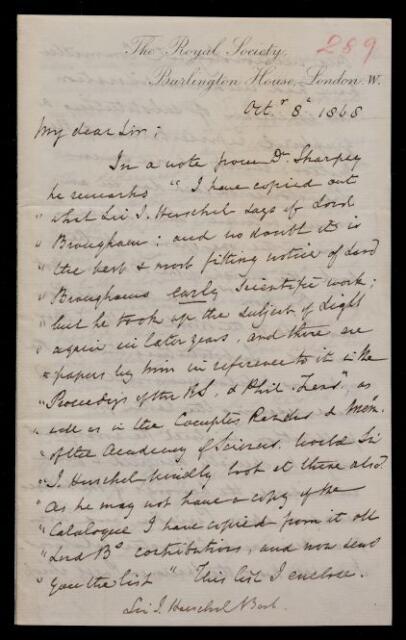 The Royal Society,
Burlington House, London W.
289
Octr 8th 1868
My dear Sir;
In a note from Dr Sharpey
he remarks " I have copied out
" what Sir J. Herschel says of Lord
" Brougham; and no doubt it is
" the best & most fitting notice of Lord
" Broughams early scientific work;
" but he took up the subject of Light
" again in later years, and there are
" papers by him in reference to it in the
" Proceedgs of the RS. & Phil. Trans", as
" well as in the Comptes Rendus & Mem.
" of the Academy of Sciences. Would Sir
" J. Herschel kindly look at these also?
" As he may not have a copy of the
" Catalogue I have copied from it all
" Lord Bs contributions, and now send
" you the list " This list I enclose.
Sir J. Herschel Bart.